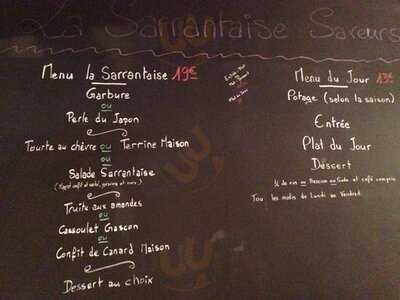 La Sarrantaise Saveurs
Menu la Sarrantaise 19€
Garbure
ou
Perle du Japon
Tourte au chèvre ou Terrine Maison
ou
Salade Sarrantaise
Truite aux amandes
ou
Cassoulet Gascon
ou
Confit de Canard Maison
Dessert au choix
Menu du Jour 13€
Potage (selon la saison)
Entrée
Plat du Jour
Dessert
¼ de vin ou Pression ou Soda et café compris
Tous les midis du Lundi au Vendredi